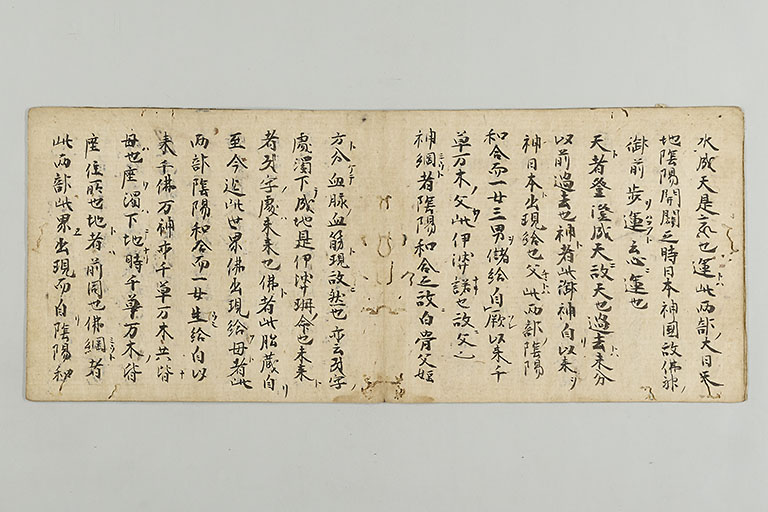 水成天是　也運此両部大日天
地陰陽開闢之時日本神国故佛神
御前歩運云 運也
天者登澄成天故天也過去未分
以前過去也神者此御神自以来
神日本出現給也父此両部陰陽
和合而一女三男儲給自厥以来千
草万木父此伊弉諾也故父云
神綱者陰陽和合之故白骨父姪
方分血脉血筋現故然也亦云 字
處濁下成地是伊弉冊命也未来
者 字處未来也佛者此胎蔵自
至今迄此世界佛出現給母者此
両部陰陽和合而一女生給自以
来千佛万神亦千草万木共皆
母也座濁下地時千草万木皆
座住所也地者前同也佛綱者
此両部此界出現而自陰陽和